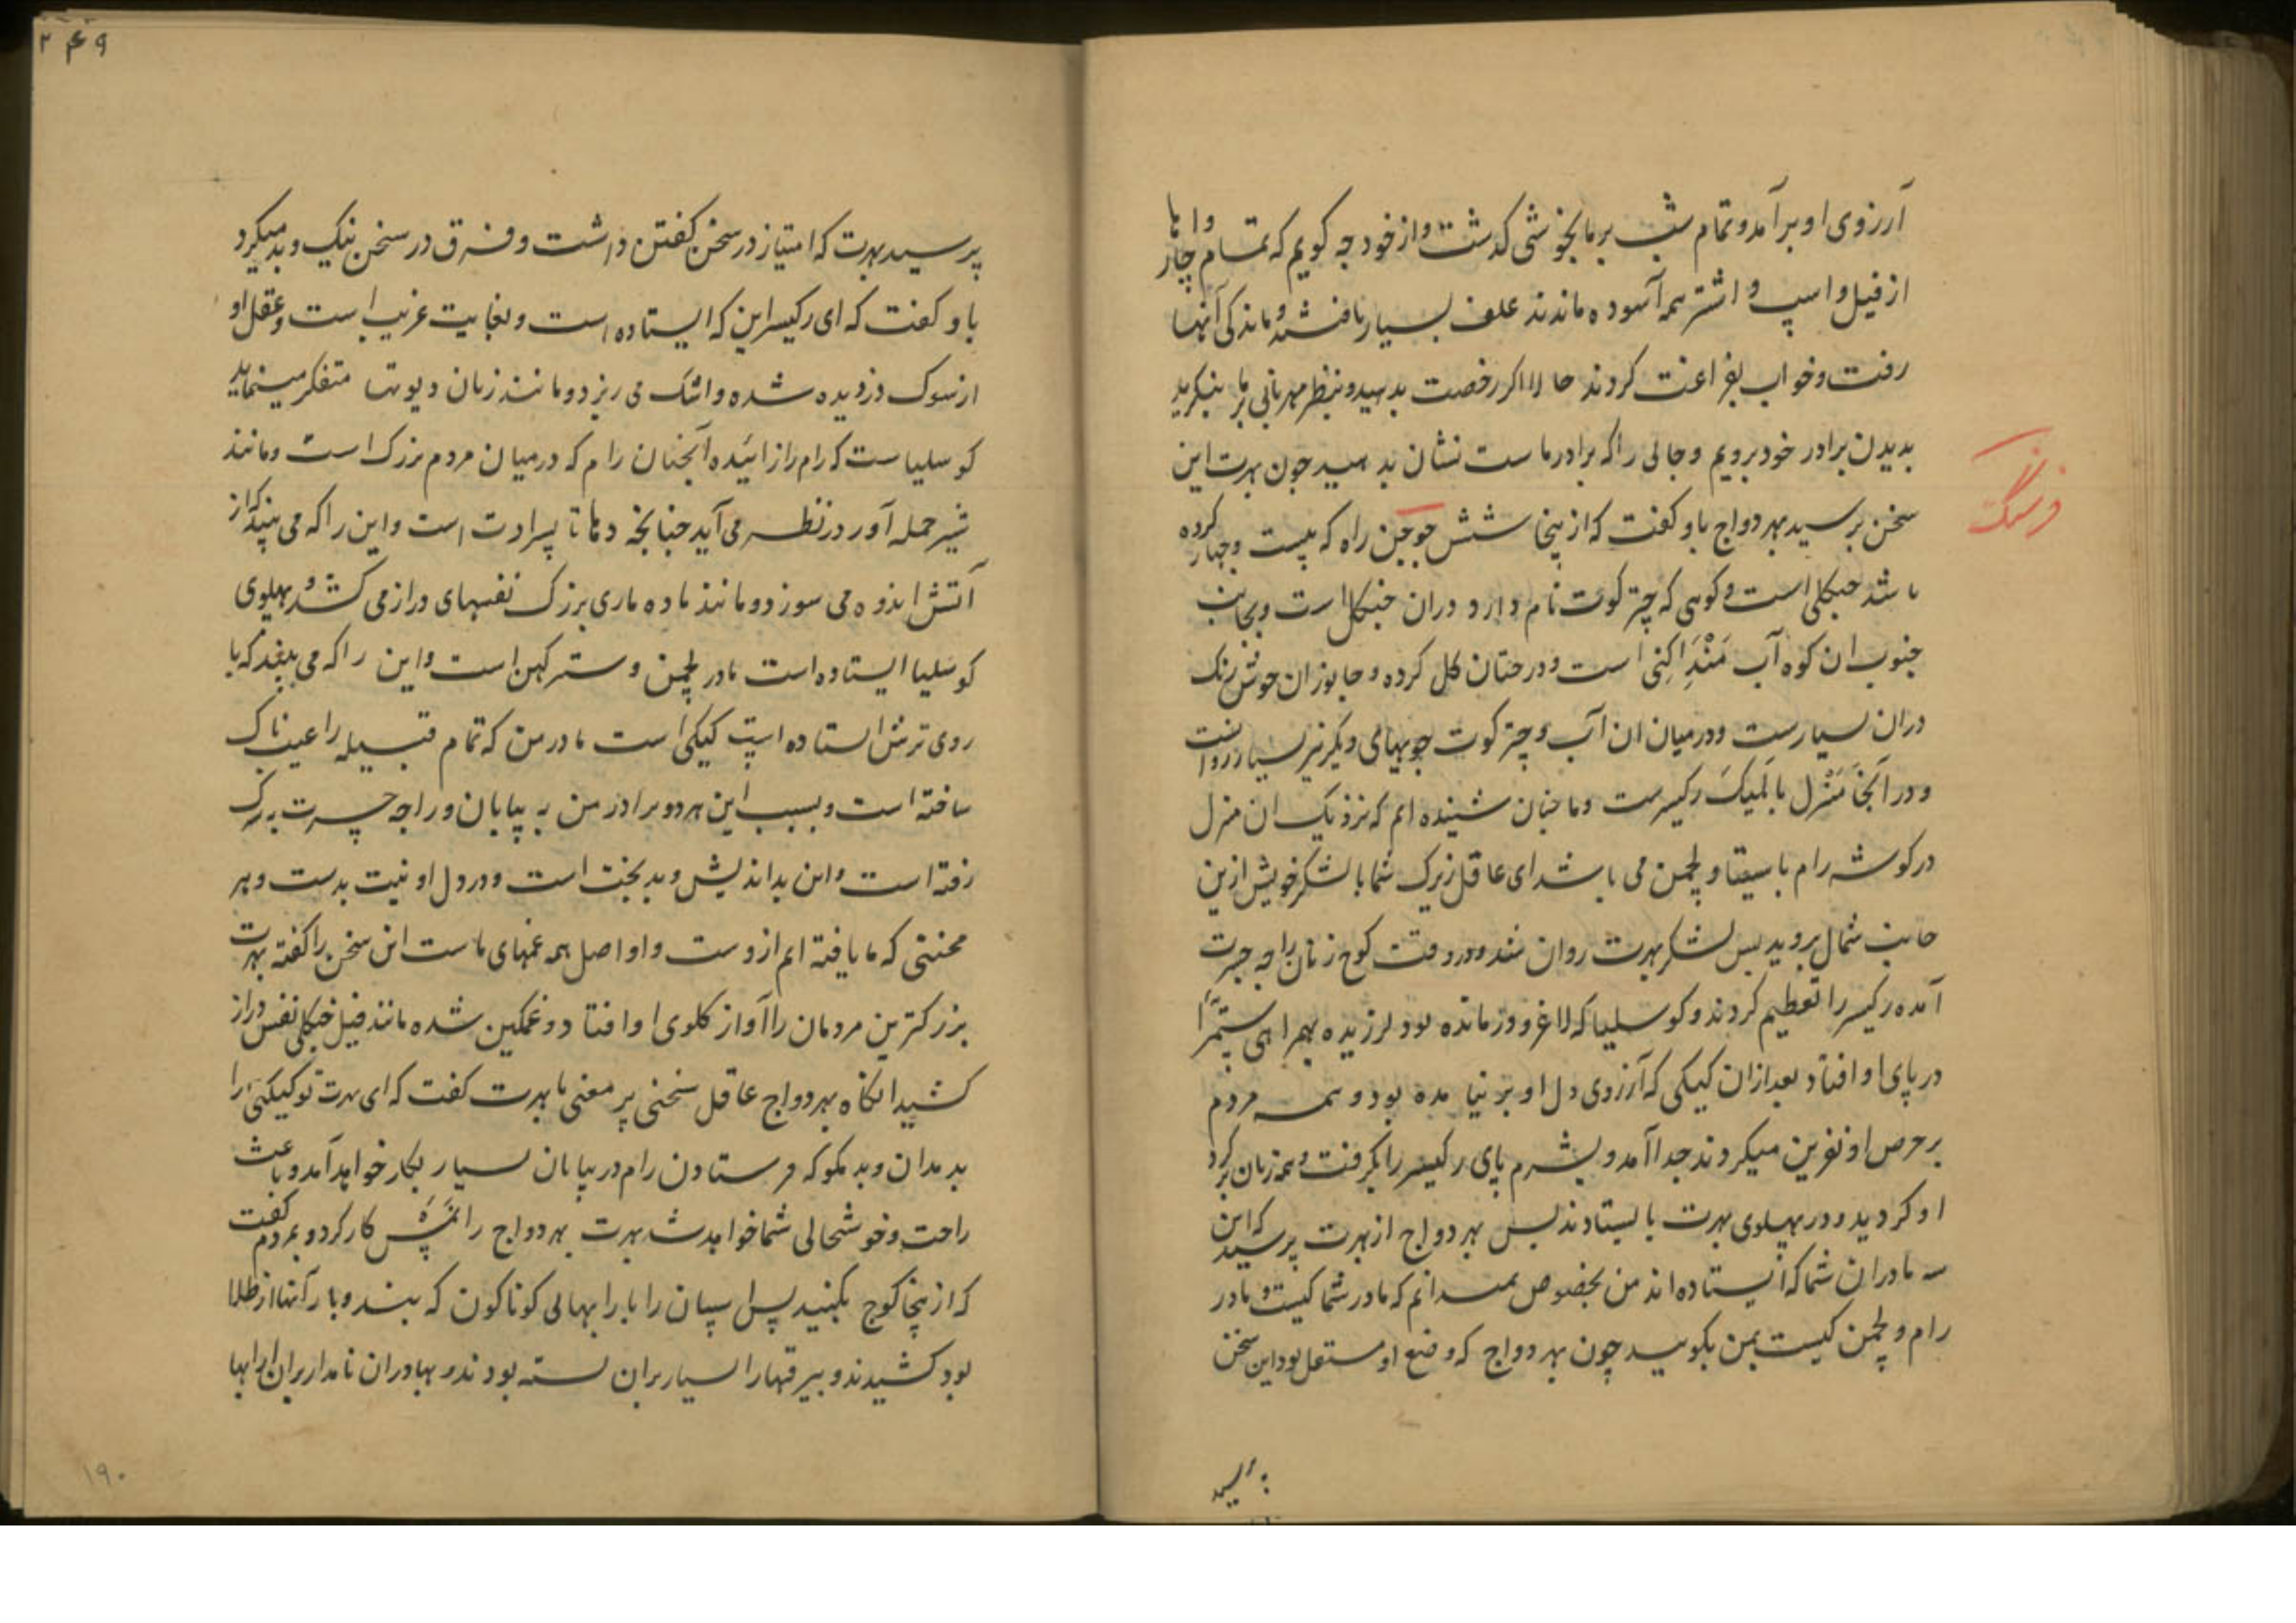 آرزوی او برآمد و تمام شب بر ما بخوشی گذشت و از خود چه کویم که تمام چار وا ما
از فیل و اسپ و اشتر همه آسوده ماندند علف بسیار یافتند و ماندکی آنها
رفت و خواب بفراغت کردند حالا اکر رخصت بدهید و بنظر مهربانی بر ما بنکرید
بدیدن برادر خود برویم و جائی را که برادر ماست نشان بدهید چون بهرت این
سخن پرسید بهردواج باو کفت که ازینجا شش جوجن راه که بیست و چهار کرده
فرسنگ
باشد جنکلی است و کوهی که چترکوت نام دارد دران جنکل است و بجانب
جنوب ان کوه آب مَنْدَاکِنی است و درختان کل کرده و جانوران خوش رنک
دران بسیارست و درمیان ان آب و چترکوت جویهای دیکر نیز بسیار روانست
و در آنجا مَنْزل بالمیک رکیسرست و ما چنان شنیده ایم که نزدیک ان منزل
در کوشه رام با سیتا و لچمن می باشد ای عاقل زیرک شما با لشکر خویش ازین
جانب شمال بروید پس لشکر بهرت روان شد و در وقت کوچ زنان راجه جسرت
آمده رکیسر را تعظیم کردند و کوسلیا که لاغر و درمانده بود لرزیده بهمراهی سپتمرا
در پای او افتاد بعد ازان کیکی که آرزوی دل او بر نیامده بود و همه مردم
بر حرص او نفرین میکردند جدا آمد و بشرم پای رکیسر را بکرفت و همه زنان کرد
او کردیده در پهلوی بهرت بایستادند پس بهردواج از بهرت پرسید که این
سه مادران شما که ایستاده اند من بخصوص نمیدانم که مادر شما کیست و مادر
رام و لچمن کیست بمن بکویید چون بهردواج که وضع او مستعل بود این سخن
پرسید
۲۴۹
پرسید بهرت که امتیاز در سخن کفتن داشت و فرق در سخن نیک و بد میکرد
باو کفت که ای رکیسر این که ایستاده است و بغایت غریب است و عقل او
از سوک دزدیده شده و اشک می ریزد و مانند زنان دیوتها متفکر مینماید
کوسلیاست که رام را زائیده آنچنان رام که درمیان مردم بزرک است و مانند
شیر حمله آور در نظر می آید چنانچه دهاتا پسر ادت است و این را که می بیند که از
آتش اندوه می سوزد و مانند ماده ماری بزرک نفسهای دراز می کشد و پهلوی
کوسلیا ایستاده است مادر لچمن و سترکهن است و این را که می بینید که با
روی ترش استاده است کیکی است مادر من که تمام قبیله را عیبناک
ساخته است و بسبب این هر دو برادر من به بیابان و راجه جسرت بمرک
رفته است و این بداندیش و بدبخت است و در دل او نیت بدست و هر
محنتی که ما یافته ایم ازوست و او اصل همه غمهای ماست این سخن را کفته بهرت
بزرکترین مردمان را آواز کلوی او افتاد و غمکین شده مانند فیل جنکلی نفس دراز
کشید انکاه بهردواج عاقل سخنی پر معنی با بهرت کفت که ای بهرت تو کیکئی را
بد مدان و بد مکو که فرستادن رام در بیابان بسیار بکار خواهد آمد و باعث
راحت و خوشحالی شما خواهد شد بهرت بهردواج را نمسکار کرد و بمردم کفت
که ازینجا کوچ بکنید پس اسپان را با رابهای کوناکون که بند و بار آنها از طلا
بود کشیدند و بیرقها را بسیار بران بسته بودند و بهادران نامدار بران ارابها
۱۹۰